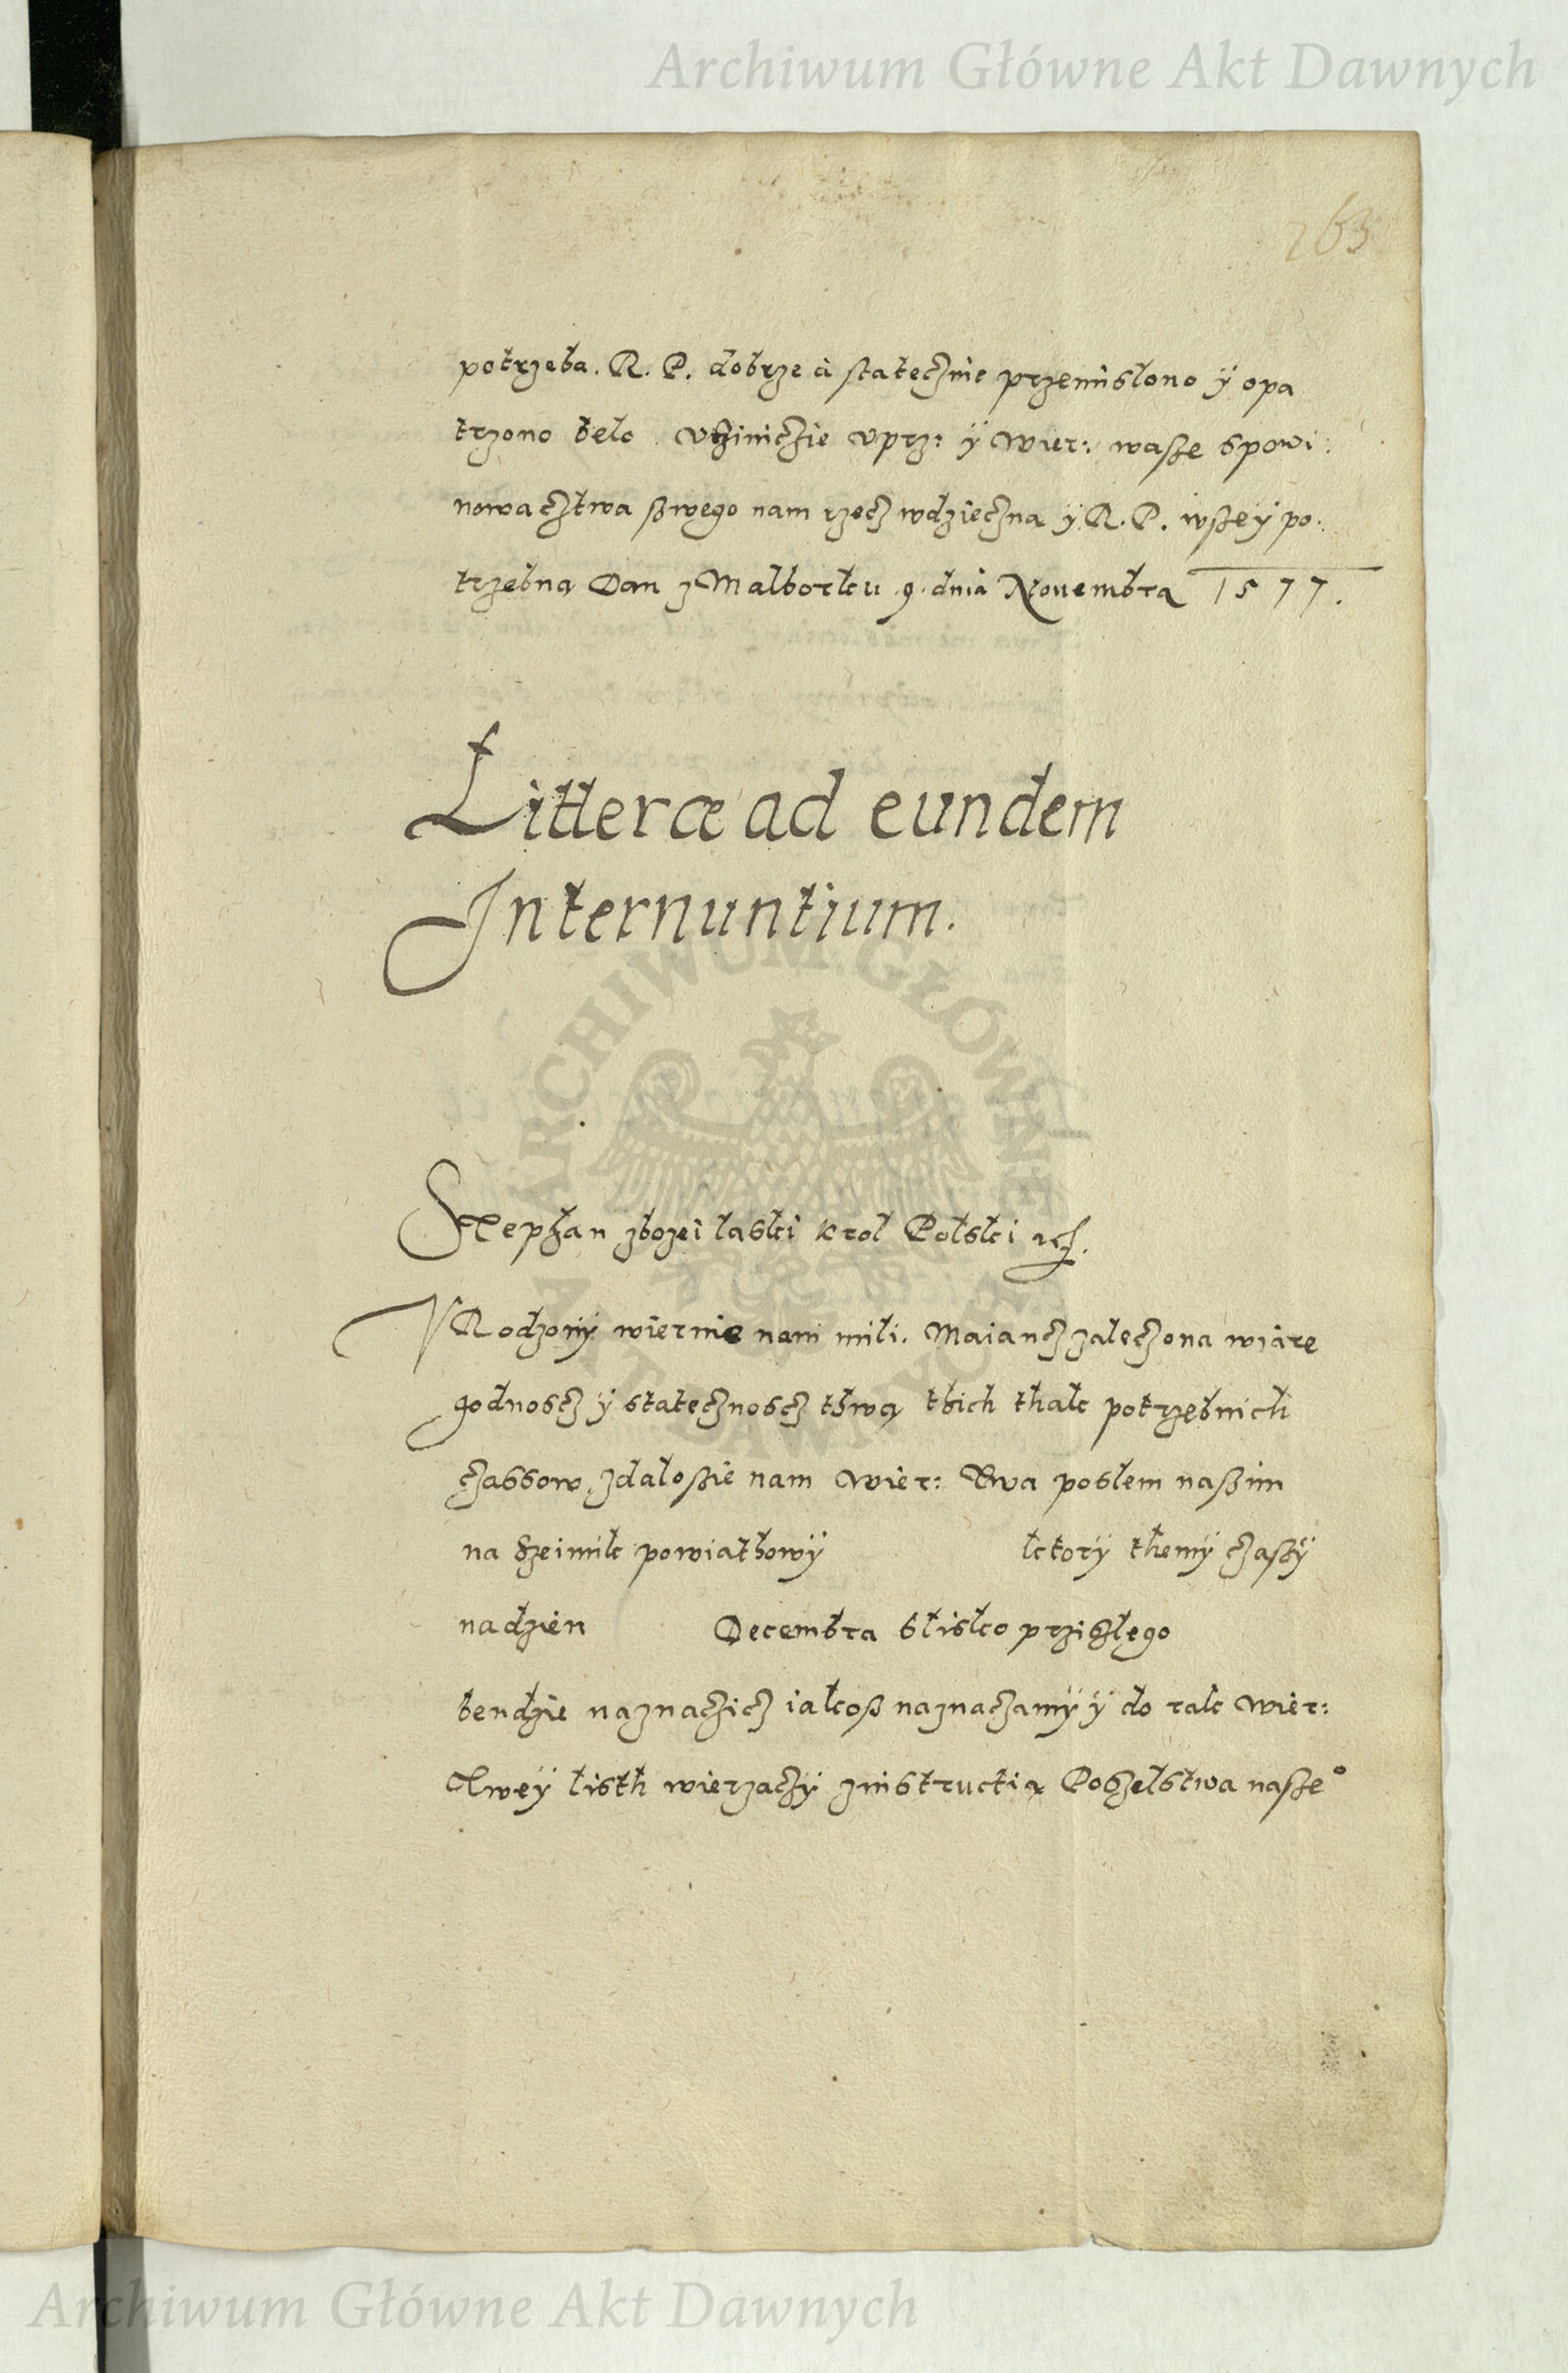 Archiwum Główne Akt Dawnych
263
potrzeba. R. P. dobrze á statecznie przemislono ÿ opa
trzono belo Vczinićzie Vprz: ÿ Wier: wasze spowi:
nowacztwa szwego nam rzecz wdzieczna ÿ R. P. wszeÿ po:
trzebna Dan z Malborku .9. dnia Novembra 1577.
Litteræ ad eundem
Internuntium.
Stephan zbozei laski Krol Polski etc.
VRodzonÿ wiernie nam mili. Maiancz zaleczona wiare
godnoscz ÿ statecznoscz thwą thich thak potrzebnich
czassow, zdaloszie nam Wier: Twa poslem naszim
na Szeimik powiathowÿ ktorÿ themÿ czaszÿ
nadzien Decembra blisko prziszlego
bendzie naznaczicz iakosz naznaczamÿ ÿ do rąk Wier:
Tweÿ listh wierzaczÿ zinstructią Poszelstwa nasze°
ARCHIWUM GŁÓWNE AKT DAWNYCH
Archiwum Główne Akt Dawnych